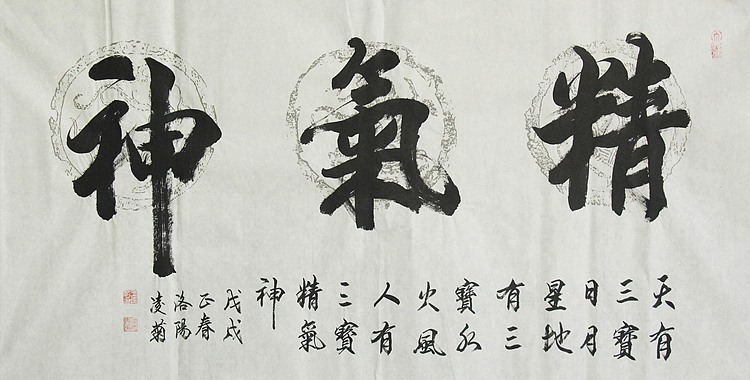 精氣神
天有
三寶
日月
星地
有三
寶水
火風
人有
三寶
精氣
神
戊戌
正春
洛陽
凌菊